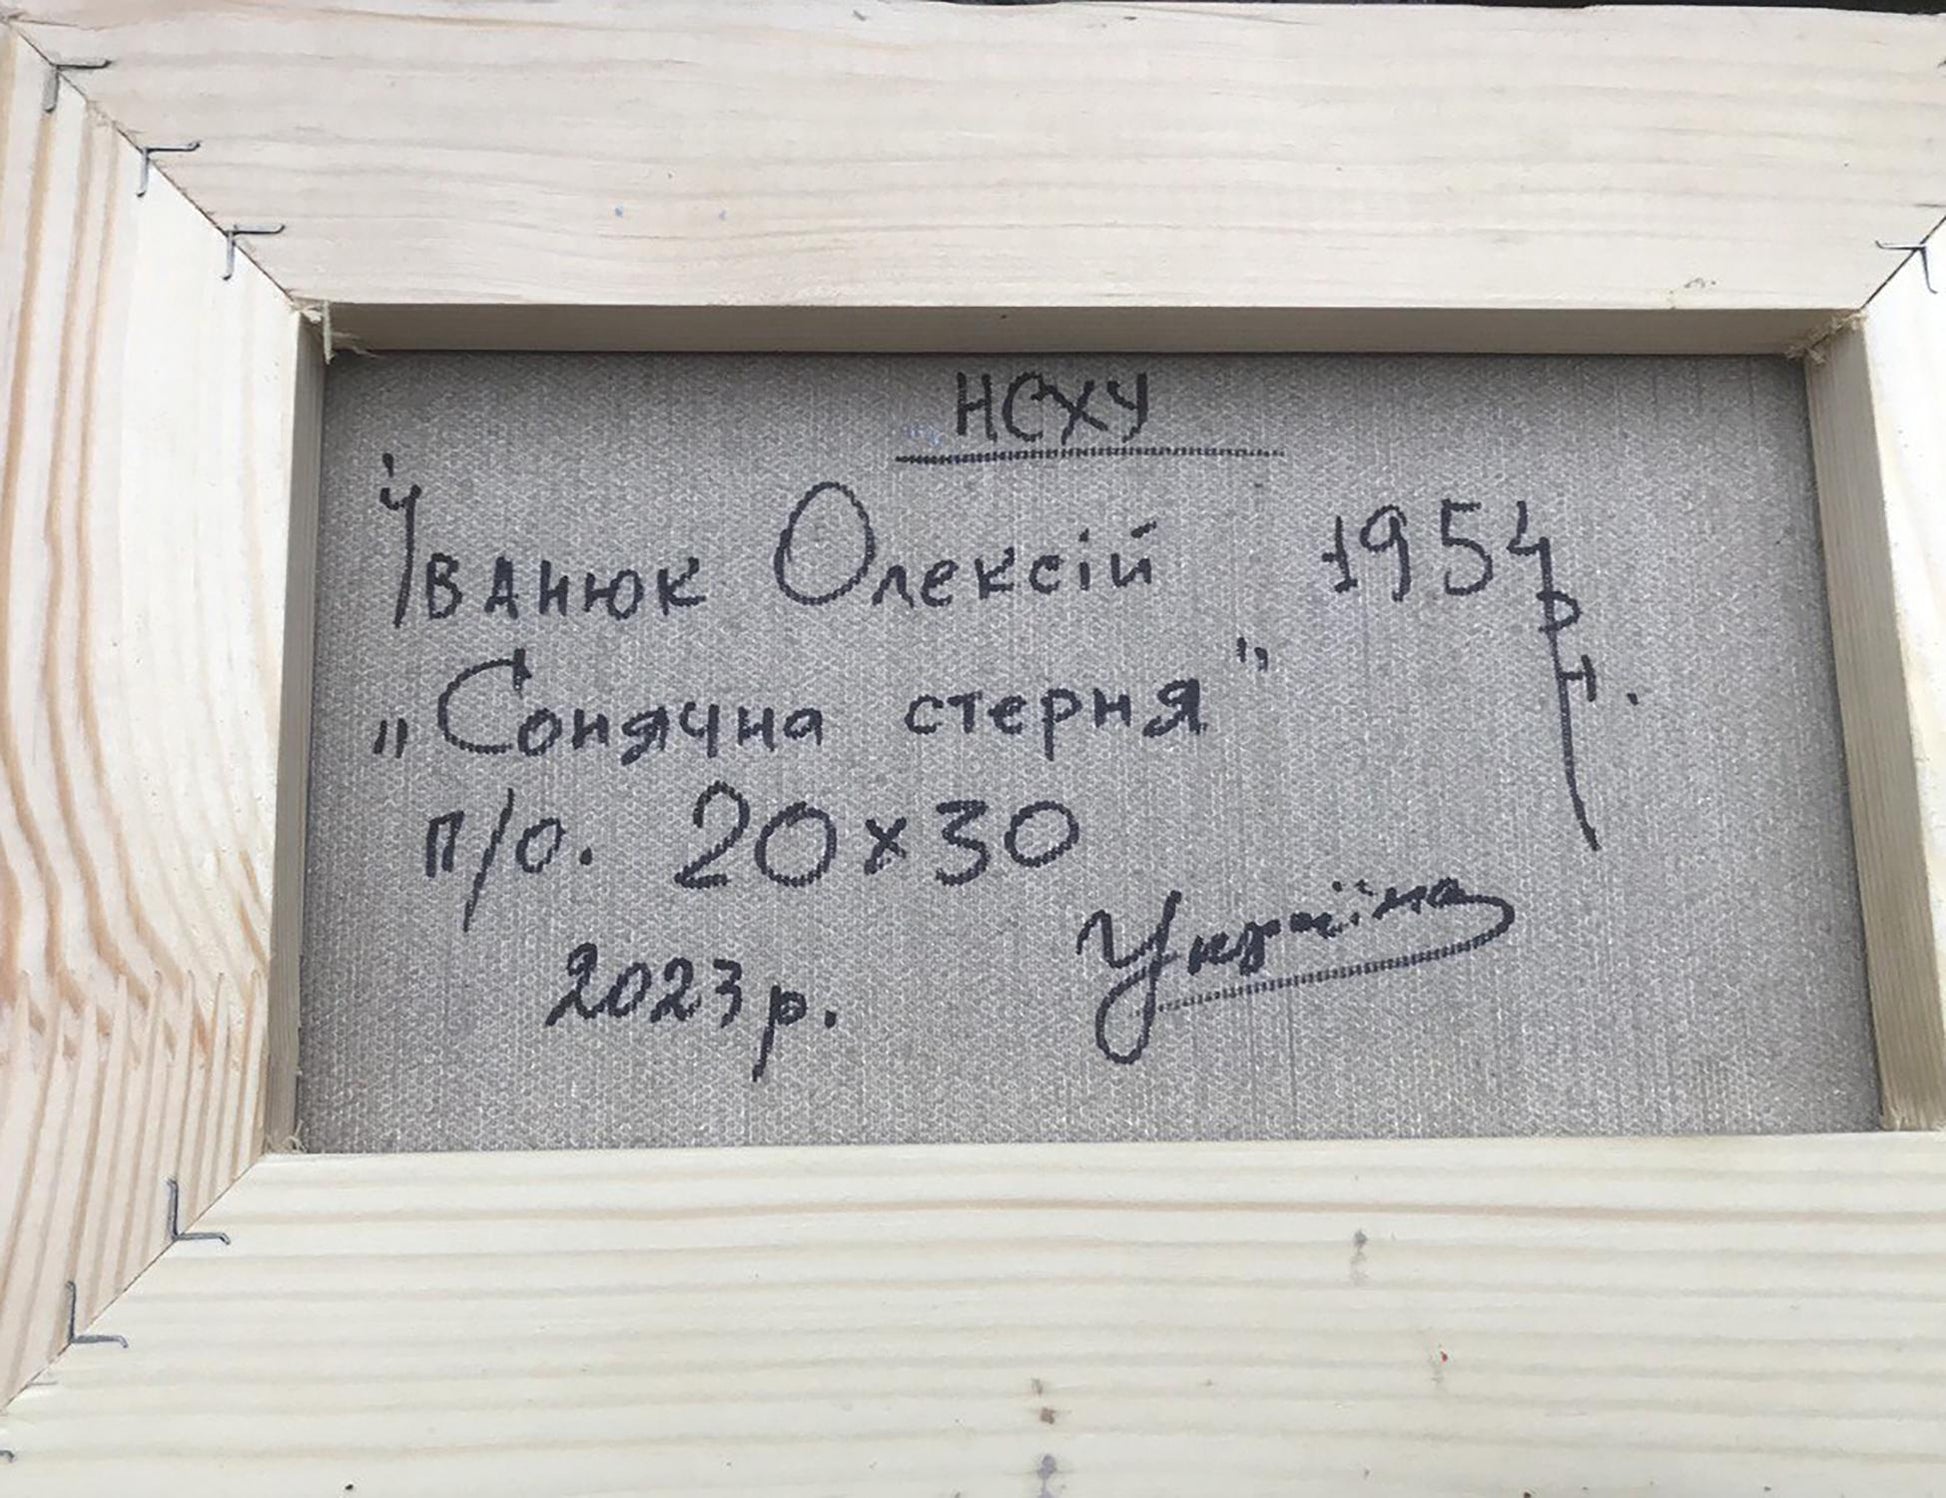 НСХУ
Іванюк Олексій 1954 р.н.
„Сонячна стерня"
п/о. 20х30
2023р. Україна